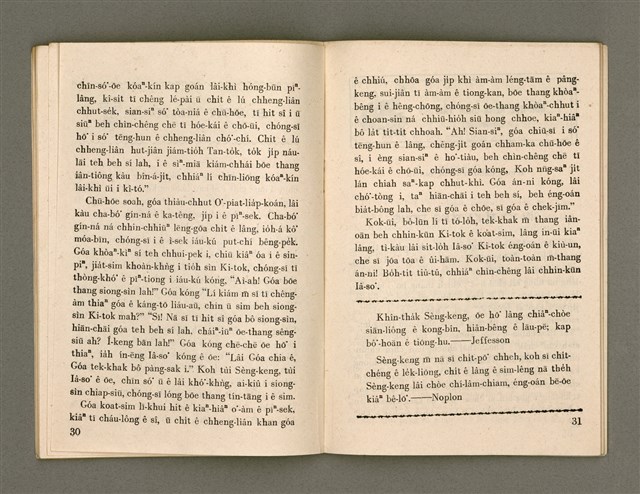 chīn-só͘-ōe kóaⁿ-kín kap goán lâi-khì hông-būn pīⁿ-
lâng, kî-sit tī chêng lé-pài ū chit ê lú chheng-liân
chhut-sék, sian-siⁿ só͘ tòa-niá ê chū-hōe, tī hit sî i ū
siūⁿ beh chìn-chêng chē tī hóe-kái ê chō-ūi, chóng-sī
hō͘ i só͘ tēng-hun ê chheng-liân chó͘-chí. Chit ê lú
chheng-liân hut-jiân jiám-tio̍h Tan-to̍k, to̍k ji̍p náu-
lāi teh beh sí lah, i ê sìⁿ-miā kiám-chhái bōe thang
iân-tiông káu bîn-á-ji̍t, chhiáⁿ lí chīn-liōng kóaⁿ-kín
lâi-khì ūi i kî-tó.”
Chū-hōe soah, góa thiàn-chhut O͘-piat-lia̍p-koán, lâi
kàu cha-bó͘ gín-ná ê ka-têng, ji̍p i ê pīⁿ-sek. Cha-bó͘
gín-ná ná chhin-chhiūⁿ lēng-góa chit ê lâng, io̍h-á kó͘
móa-bīn, chóng-sī i ê ì-sek iáu-kú put-chí bêng-pe̍k.
Góa khòaⁿ-kìⁿ sí teh chhui-pek i, chiū kiâⁿ óa i ê sin-
piⁿ, jia̍t-sim khoàn-khǹg i tio̍h sìn Ki-tok, chóng-sī tī
thòng-khó͘ ê pīⁿ-tiong i iáu-kú kóng, “Ai-ah! Góa bōe
thang siong-sìn lah!” Góa kóng “Lí kiám m̄ sī tī chêng-
àm thiaⁿ góa ê káng-tō liáu-āu, chin ū sim beh siong-
sìn Ki-tok mah?” “Sī! Nā sī tī hit sî góa bô siong-sìn,
hiān-chāi góa teh beh sí lah, cháiⁿ-iūⁿ ōe-thang sêng-
siū ah? Í-keng bān lah!” Góa kóng chē-chē ōe hō͘ i
thiaⁿ, iáh ín-ēng Iâ-so͘ kóng ê ōe: “Lâi Góa chia ê,
Góa tek-khak bô pàng-sak i.” Koh tùi Sèng-keng, tùi
Iâ-so͘ ê ōe, chīn só͘ ū ê lâi khó͘-khǹg, ai-kiû i siong-
sìn chiap-siū, chóng-sī lóng bōe thang tín-tāng i ê sim.
Góa koat-sim lī-khui hit ê kiaⁿ-hiâⁿ o͘-àm ê pīⁿ-sek,
kiâⁿ tī cháu-lông ê sî, ū chit ê chheng-liân khan góa
30
ê chhiú, chhōa góa ji̍p khì àm-àm léng-tām ê pâng-
keng, sui-jiân tī àm-àm ê tiong-kan, bōe thang khòaⁿ-
bêng i ê hêng-chōng, chóng-sī ōe-thang khòaⁿ-chhut i
ê choan-sin ná chhiū-hio̍h siū hong chhoe, kiaⁿ-hiâⁿ
bô la̍t ti̍t-ti̍t chhoah. “Ah! Sian-siⁿ, góa chiū-sī i só͘
tēng-hun ê lâng, chêng-ji̍t goán chham-ka chū-hōe ê
sî, i èng sian-siⁿ ê ho͘-tiàu, beh chìn-chêng chē tī
hóe-kái ê chō-ūi, chóng-sī góa kóng, Koh nn̄g-saⁿ ji̍t
lán chiah saⁿ-kap chhut-khì. Góa án-ni kóng, lâi
chó͘-tòng i, taⁿ hiān-chāi i teh beh sí, beh éng-oán
bia̍t-bông lah, che sī góa ê chōe, sī góa ê chek-jīm.”
Kok-ūi, bô-lūn lí tī tó-lo̍h, tek-khak m̄ thang iân-
oān beh chhin-kūn Ki-tok ê koat-sim, lâng in-ūi kiaⁿ
lâng, tì-kàu lâi sit-lo̍h Iâ-so͘ Ki-tok éng-oán ê kiù-un,
che sī jōa tōa ê ûi-hiám. Kok-ūi, toàn-toàn m̄-thang
án-ni! Bo̍h-tit tiû-tû, chhiáⁿ chìn-chêng lâi chhin-kūn
Iâ-so͘.
Khîn-thak Sèng-keng, ōe hō͘ lâng chiâⁿ-chòe
siān-liông ê kong-bîn, hiân-bêng ê lāu-pē; kap
bó͘-hoān ê tiōng-hu.——Jeffesson
Sèng-keng m̄ nā sī chi̍t-pō͘ chheh, koh sī chi̍t-
chéng ê le̍k-liōng, chi̍t ê lâng ê sim-lêng nā the̍h
Sèng-keng lâi chòe chí-lâm-chiam, éng-oán bē-ōe
kiâⁿ bê-lō͘.——Noplon
31